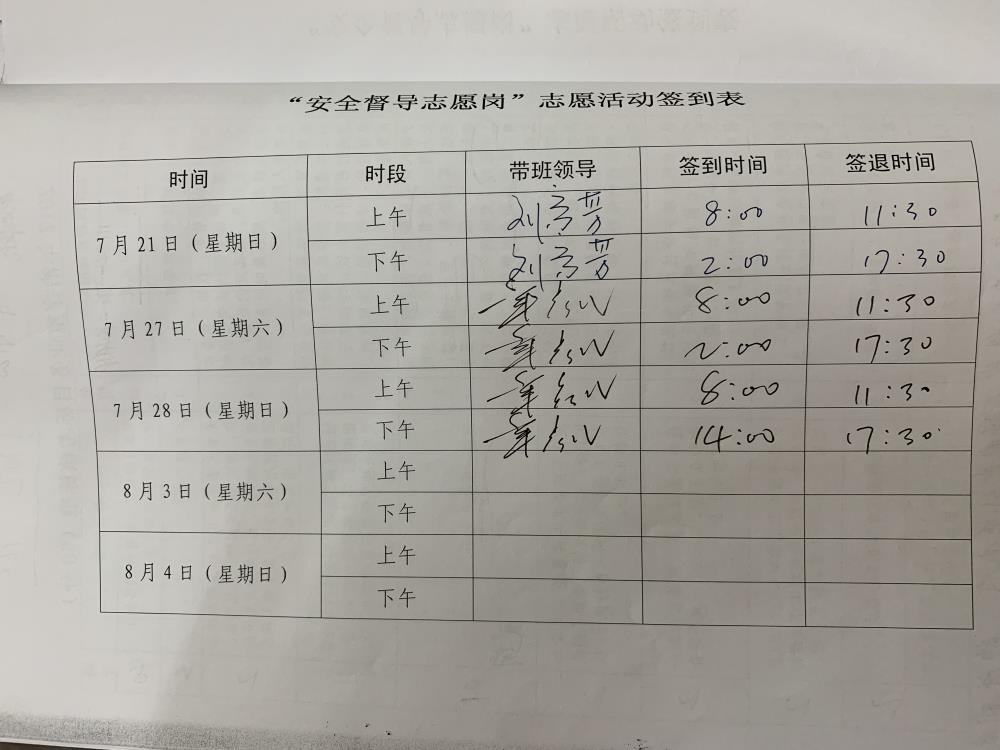 “安全督导志愿岗”志愿活动签到表
时间 时段 带班领导 签到时间 签退时间
7月21日（星期日） 上午 8:00 11:30
下午 2:00 17:30
7月27日（星期六） 上午 8:00 11:30
下午 2:00 17:30
7月28日（星期日） 上午 8:00 11:30
下午 14:00 17:30
8月3日（星期六） 上午
下午
8月4日（星期日） 上午
下午